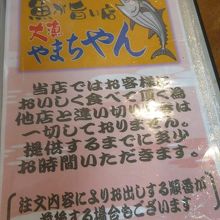 魚が旨い店
大東
やまちやん
当店ではお客様に
おいしく食べて頂く為
他店と違い切り置きは
一切しておりません。
提供するまでに多少
お時間いただきます。
注文内容によりお出しする順番が
前後する場合もございます